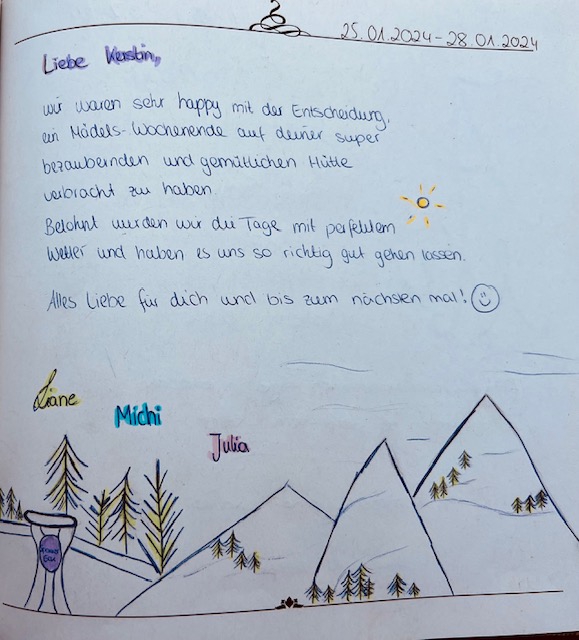 25.01.2024 - 28.01.2024
Liebe Kerstin,
wir waren sehr happy mit der Entscheidung,
ein Mädels-Wochenende auf deiner super
bezaubernden und gemütlichen Hütte
verbracht zu haben.
Belohnt wurden wir die Tage mit perfektem
Wetter und haben es uns so richtig gut gehen lassen.
Alles Liebe für dich und bis zum nächsten mal!
Liane
Michi
Julia